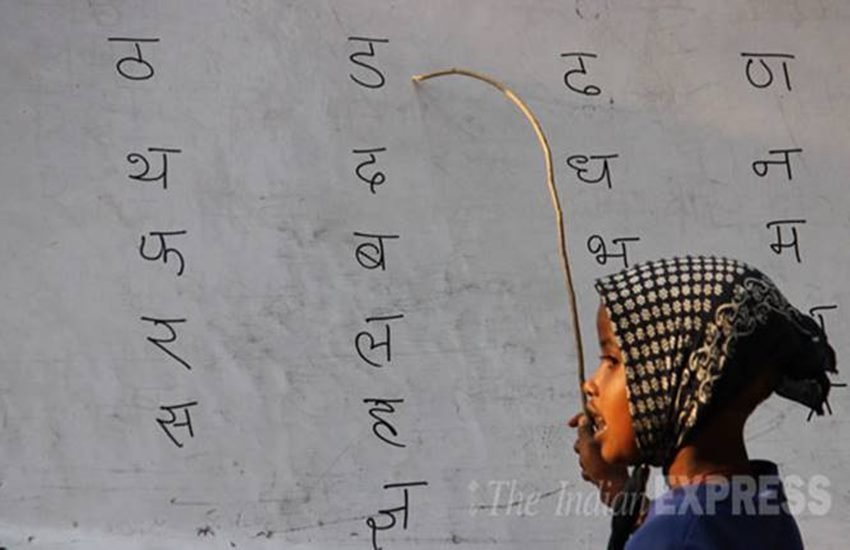 ठ ड ढ ण
थ द ध न
फ ब भ म
र ल
स ह
ज्ञ
The Indian EXPRESS